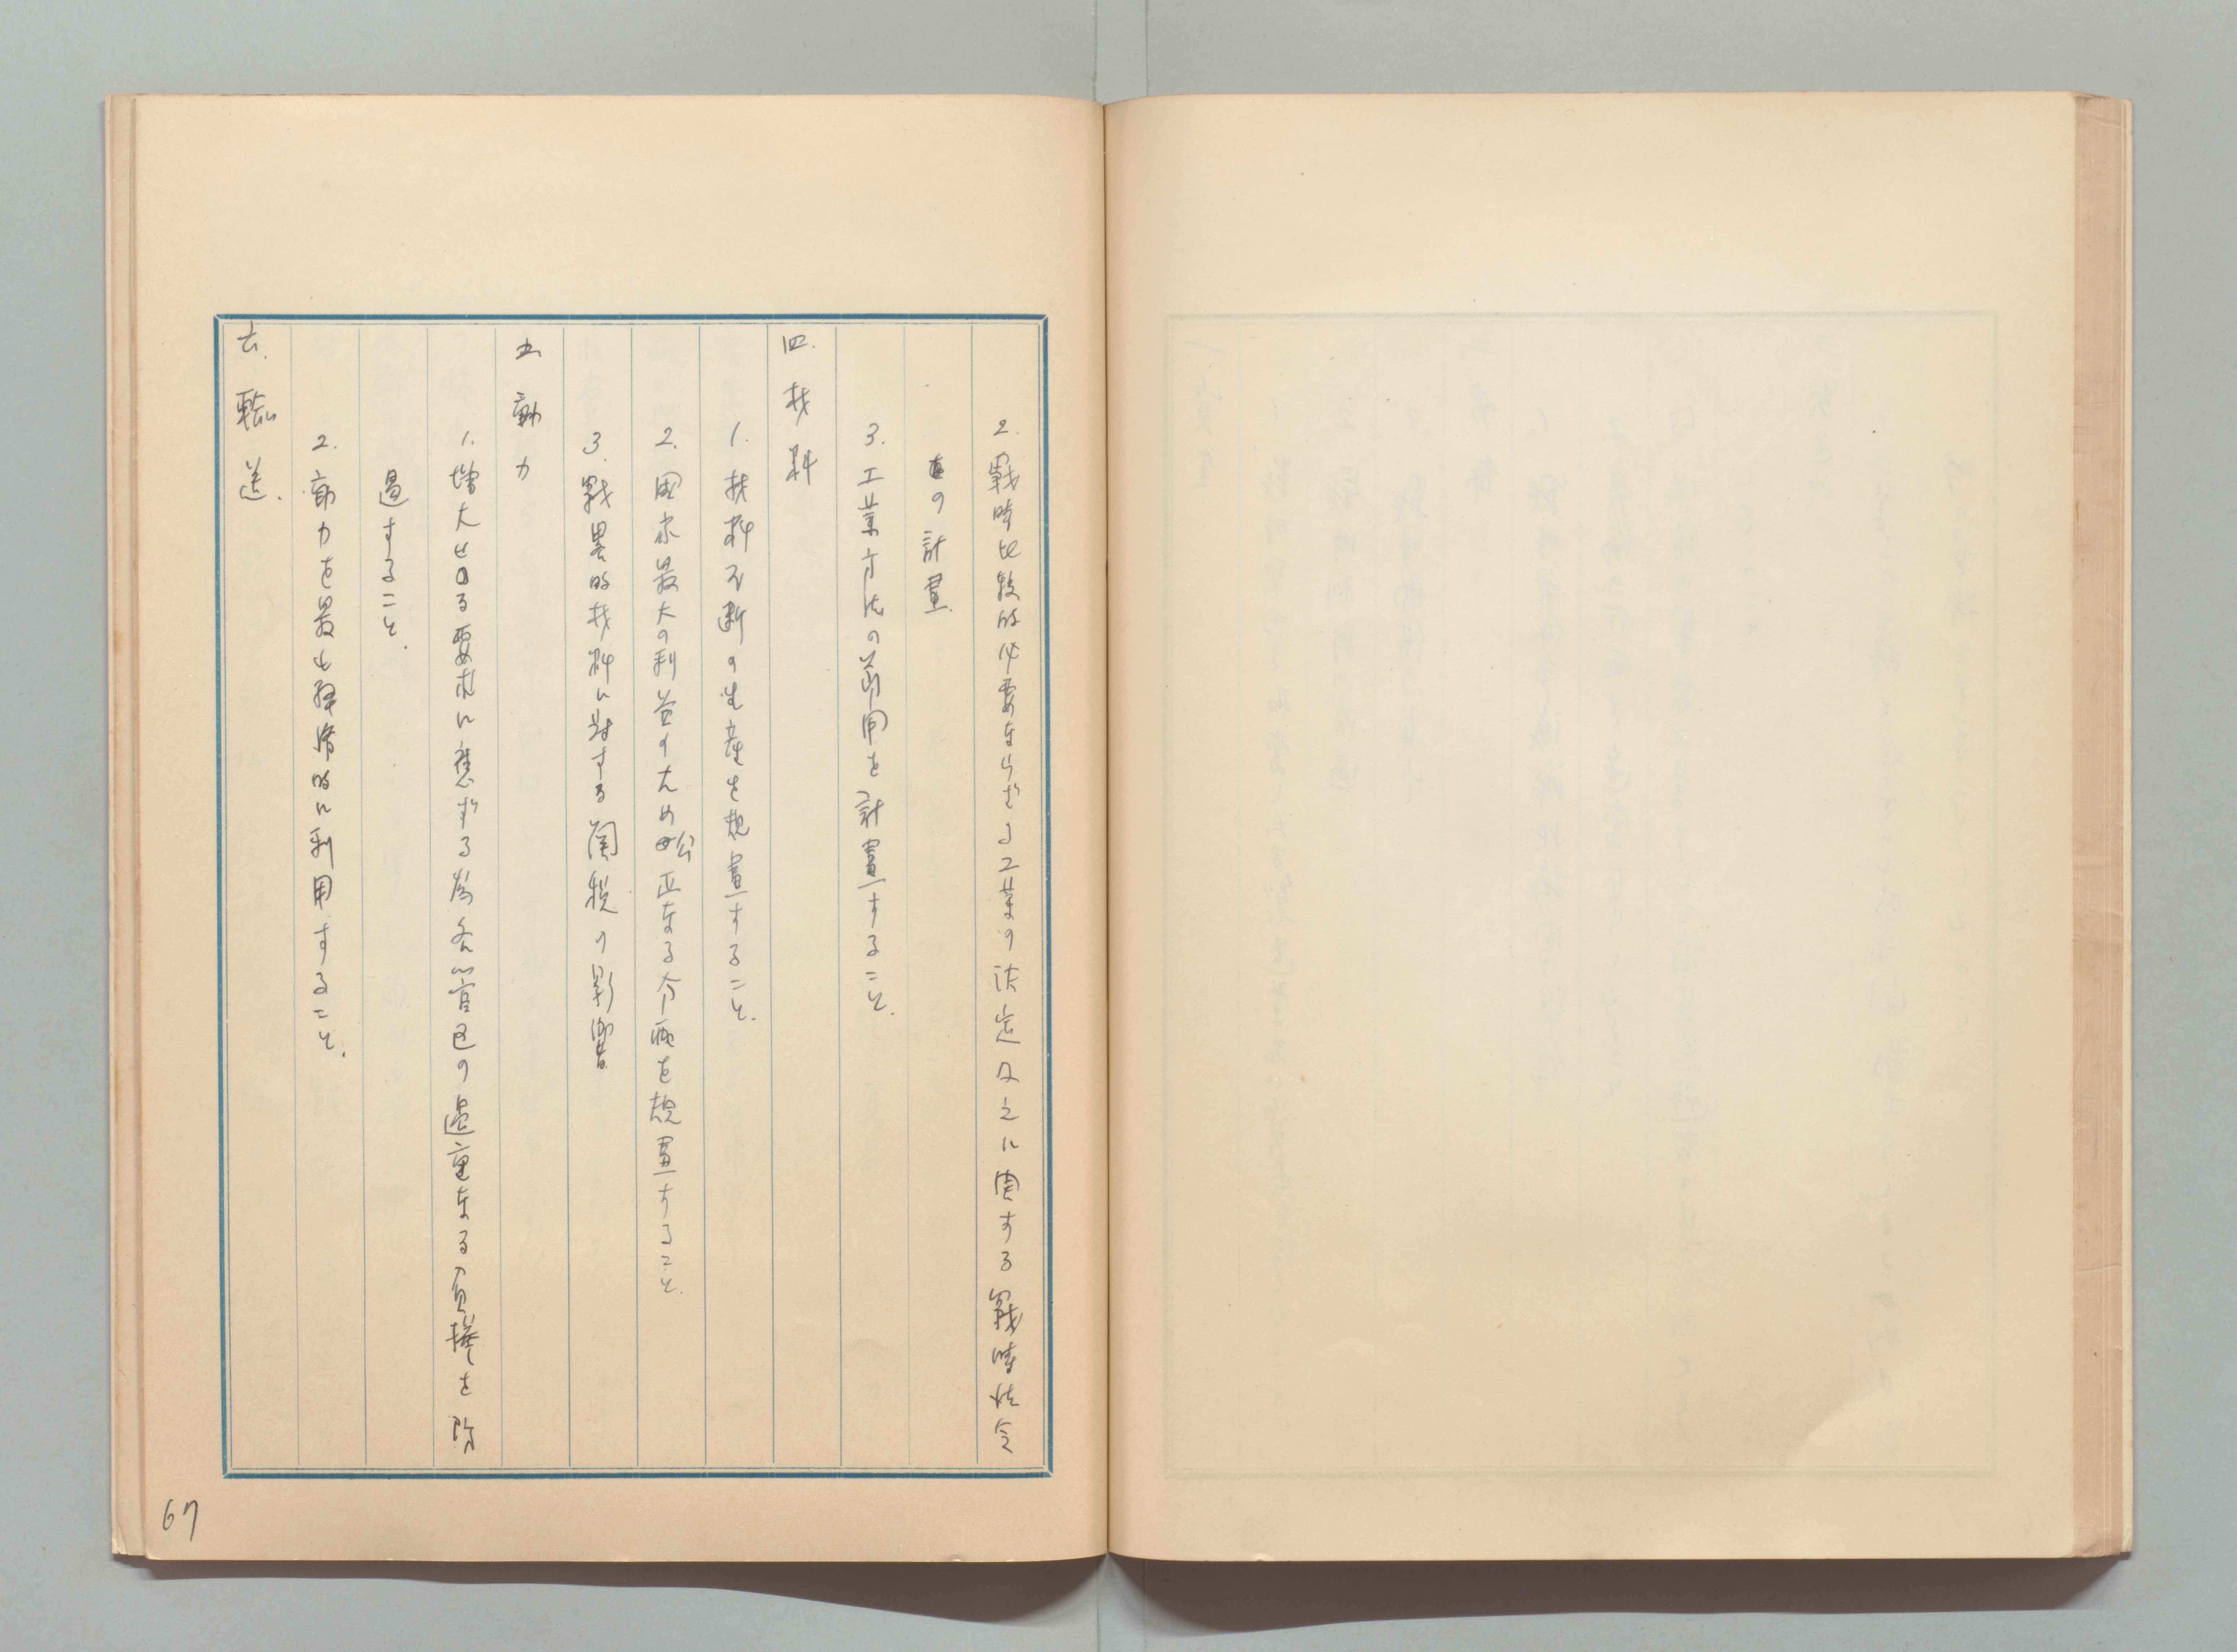 2. 戰時比較的必要ならざる工業の決定及之に関する戰時法令
の計畫.
3. 工業方法の節用を計畫すること.
四. 材料
1. 材料不断の生産を規畫すること.
2. 国家最大の利益のため公正なる分配を規畫すること.
3. 戰畧的材料に対する関税の影響
五 動力
1. 増大せる要求に應ずる為各管区の過重なる負擔を
過すること.
2. 動力を最も経済的に利用すること.
六. 輸送.
67